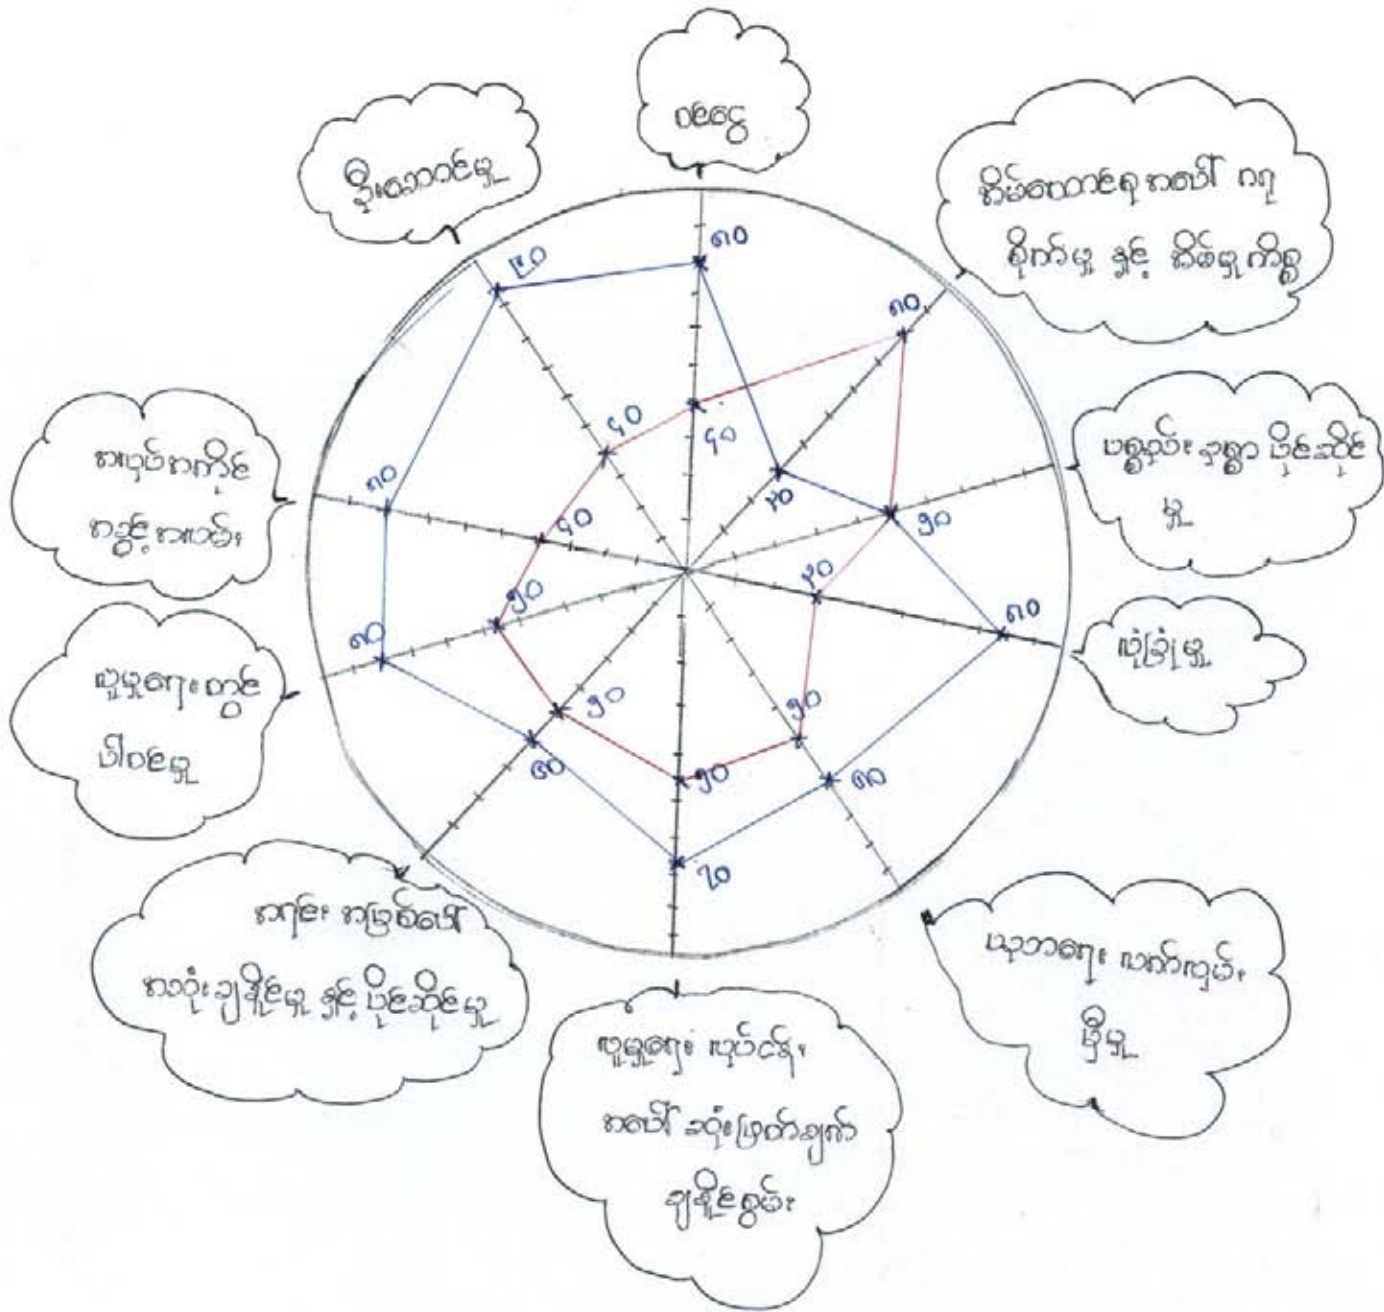 ဝင်ငွေ
ဦးဆောင်မှု
အိမ်ထောင်စု အပေါ် ဂရု
စိုက်မှု နှင့် အိမ်မှုကိစ္စ
ပစ္စည်း ဥစ္စာ ပိုင်ဆိုင်
မှု
လုံခြုံမှု
ယုဘရေး လက်လှမ်း
မှီမှု
လူမှုရေး လုပ်ငန်း
အပေါ် ဆုံးဖြတ်ချက်
ချနိုင်စွမ်း
အရင်း အမြစ်ပေါ်
အသုံးချနိုင်မှု နှင့် ပိုင်ဆိုင်မှု
လူမှုရေးတွင်
ပါဝင်မှု
အလုပ်အကိုင်
အခွင့်အလမ်း
၉၀
၈၀
၈၀
၄၀
၄၀
၃၀
၅၀
၃၀
၈၀
၅၀
၅၀
၇၀
၅၀
၆၀
၅၀
၈၀
၄၀
၈၀